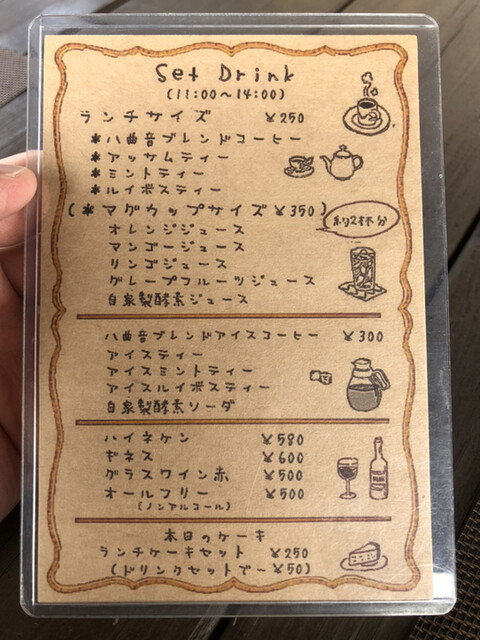 Set Drink
(11:00〜14:00)
ランチサイズ ¥250
*八曲音ブレンドコーヒー
*アッサムティー
*ミントティー
*ルイボスティー
(*マグカップサイズ¥350)
約2杯分
オレンジジュース
マンゴージュース
リンゴジュース
グレープフルーツジュース
自家製酵素ジュース
八曲音ブレンドアイスコーヒー ¥300
アイスティー
アイスミントティー
アイスルイボスティー
自家製酵素ソーダ
ハイネケン ¥580
ギネス ¥600
グラスワイン赤 ¥500
オールフリー ¥500
(ノンアルコール)
本日のケーキ
ランチケーキセット ¥250
(ドリンクセットで−¥50)